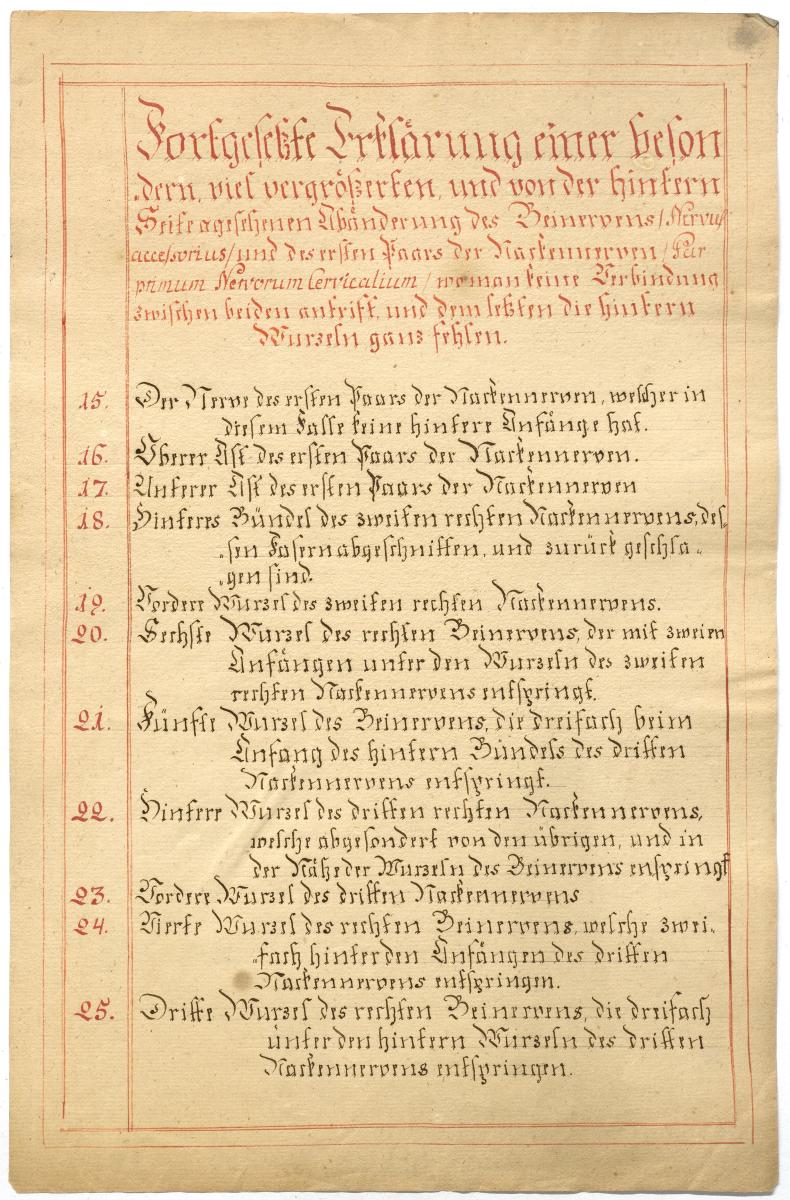 Fortgesetzte Erklärung einer beson
„dern, viel vergrößerten, und von der hintern
Seite agesehenen Abänderung des Beinervens / Nervus
accessorius / und des ersten Paars der Nackennerven / Par
primum Nervorum Cervicalium / wo man keine Verbindung
zwischen beiden antrift, und dem letzten die hintern
Wurzeln ganz fehlen.
15. Der Nerve des ersten Paars der Nackennerven, welcher in
diesem Falle keine hintere Anfänge hat.
16. Oberer Ast des ersten Paars der Nackennerven.
17. Unterer Ast des ersten Paars der Nackennerven
18. Hinteres Bündel des zweiten rechten Nackennervens, des„
„sen Fasern abgeschnitten, und zurück geschla„
„gen sind.
19. Vordere Wurzel des zweiten rechten Nackennervens.
20. Sechste Wurzel des rechten Beinervens, der mit zweien
Anfängen unter den Wurzeln des zweiten
rechten Nackennervens entspringt.
21. Fünfte Wurzel des Beinervens, die dreifach beim
Anfang des hintern Bündels des dritten
Nackennervens entspringt.
22. Hintere Wurzel des dritten rechten Nackennervens,
welche abgesondert von den übrigen, und in
der Nähe der Wurzeln des Beinervens enspringt
23. Vordere Wurzel des dritten Nackennervens
24. Vierte Wurzel des rechten Beinervens, welche zwei„
„fach hinter den Anfängen des dritten
Nackennervens entspringen.
25. Dritte Wurzel des rechten Beinervens, die dreifach
unter den hintern Wurzeln des dritten
Nackennervens entspringen.